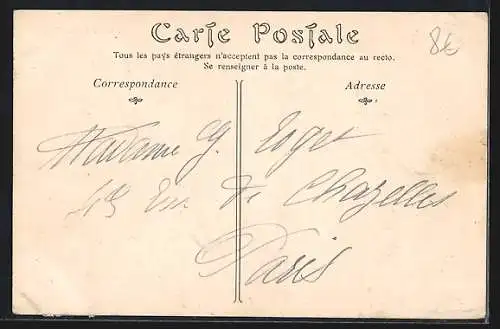 Carte Postale
Tous les pays étrangers n'acceptent pas la correspondance au recto.
Se renseigner à la poste.
Correspondance
Adresse
Madame G.
de Chazelles
Paris